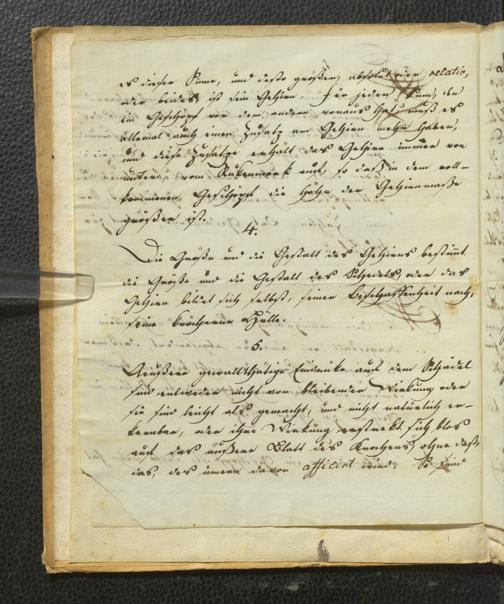 es dieser Sinne, und desto größer, absolut oder relativ,
oder beides ist sein Gehirn. Für jeden Sinn, den
ein Geschöpf vor dem andern voraus hat, muß es
allemal auch einen Zusatz am Gehirn mehr haben,
und diese Zusätze erhält das Gehirn immer von
unten, vom Rükenmark aus, so daß in dem voll-
kommenen Geschöpf die Höhe der Gehirnmaße
größer ist.
4.
Die Größe und die Gestalt des Gehirns bestimmt
die Größe und die Gestalt des Schedels, oder das
Gehirn bildet sich selbst, seiner Beschaffenheit nach,
seine knöcherne Hülle.
5.
Aeußere gewaltthätige Eindrüke auf dem Schädel
sind entweder nicht von bleibender Wirkung oder
sie sind leicht als gemacht, und nicht natürlich er-
kennbar, oder ihre Wirkung erstrekt sich blos
auf das äußere Blatt des Knochens, ohne daß
das innere davon afficirt wird. So sind